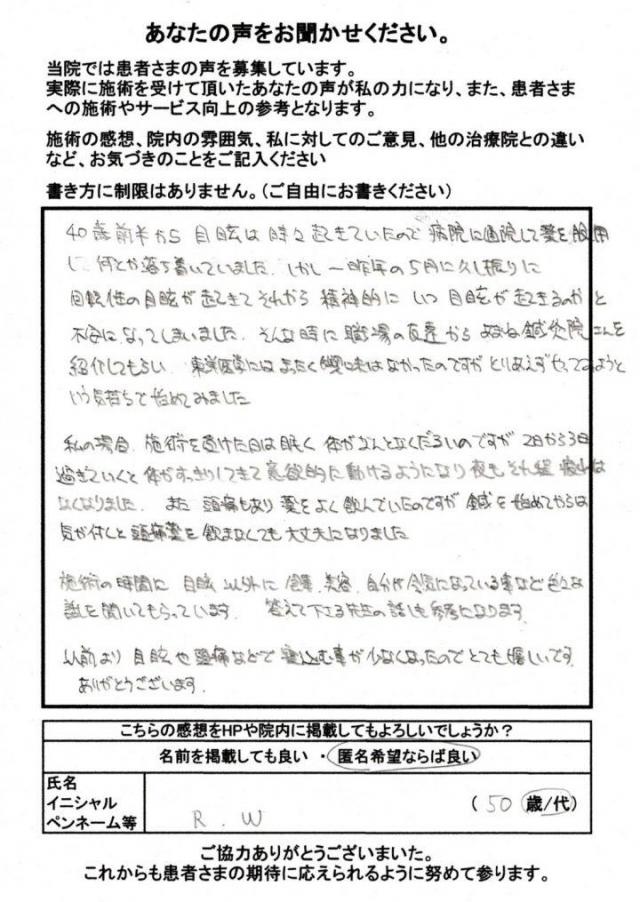 あなたの声をお聞かせください。
当院では患者さまの声を募集しています。
実際に施術を受けて頂いたあなたの声が私の力になり、また、患者さま
への施術やサービス向上の参考となります。
施術の感想、院内の雰囲気、私に対してのご意見、他の治療院との違い
など、お気づきのことをご記入ください
書き方に制限はありません。(ご自由にお書きください)
40歳前半から 目眩は時々起きていたので 病院に通院して薬を服用
し 何とか落ち着いていました. しかし 一昨年の5月に久し振りに
回転性の目眩が起きて それから 精神的に いつ 目眩が起きるのか と
不安になってしまいました. そんな時に 職場の友達から 鍼灸院さんを
紹介してもらい 東洋医学にはまったく興味はなかったのですが とりあえずやってみようと
いう気持ちで始めてみました
私の場合 施術を受けた日は眠く 体がなんとなくだるいのですが 2日から3日
過ぎていくと 体がすっきりしてきて 意欲的に動けるようになり 夜も それ程
なくなりました. また 頭痛もあり 薬をよく飲んでいたのですが 鍼を始めてからは
気が付くと 頭痛薬を飲まなくても 大丈夫になりました
施術の時間に 目眩以外に 食事.美容. 自分が今気になっている事など色々な
話しを聞いてもらっています. 答えて下さる先生の話しも参考になります
以前より 目眩や頭痛などで寝込む事が少なくなったのでとても嬉しいです.
ありがとうございます.
こちらの感想をHPや院内に掲載してもよろしいでしょうか?
名前を掲載しても良い ・ 匿名希望ならば良い
氏名
イニシャル
ペンネーム等
R . W
( 50 歳/代)
ご協力ありがとうございまいた。
これからも患者さまの期待に応えられるように努めて参ります。